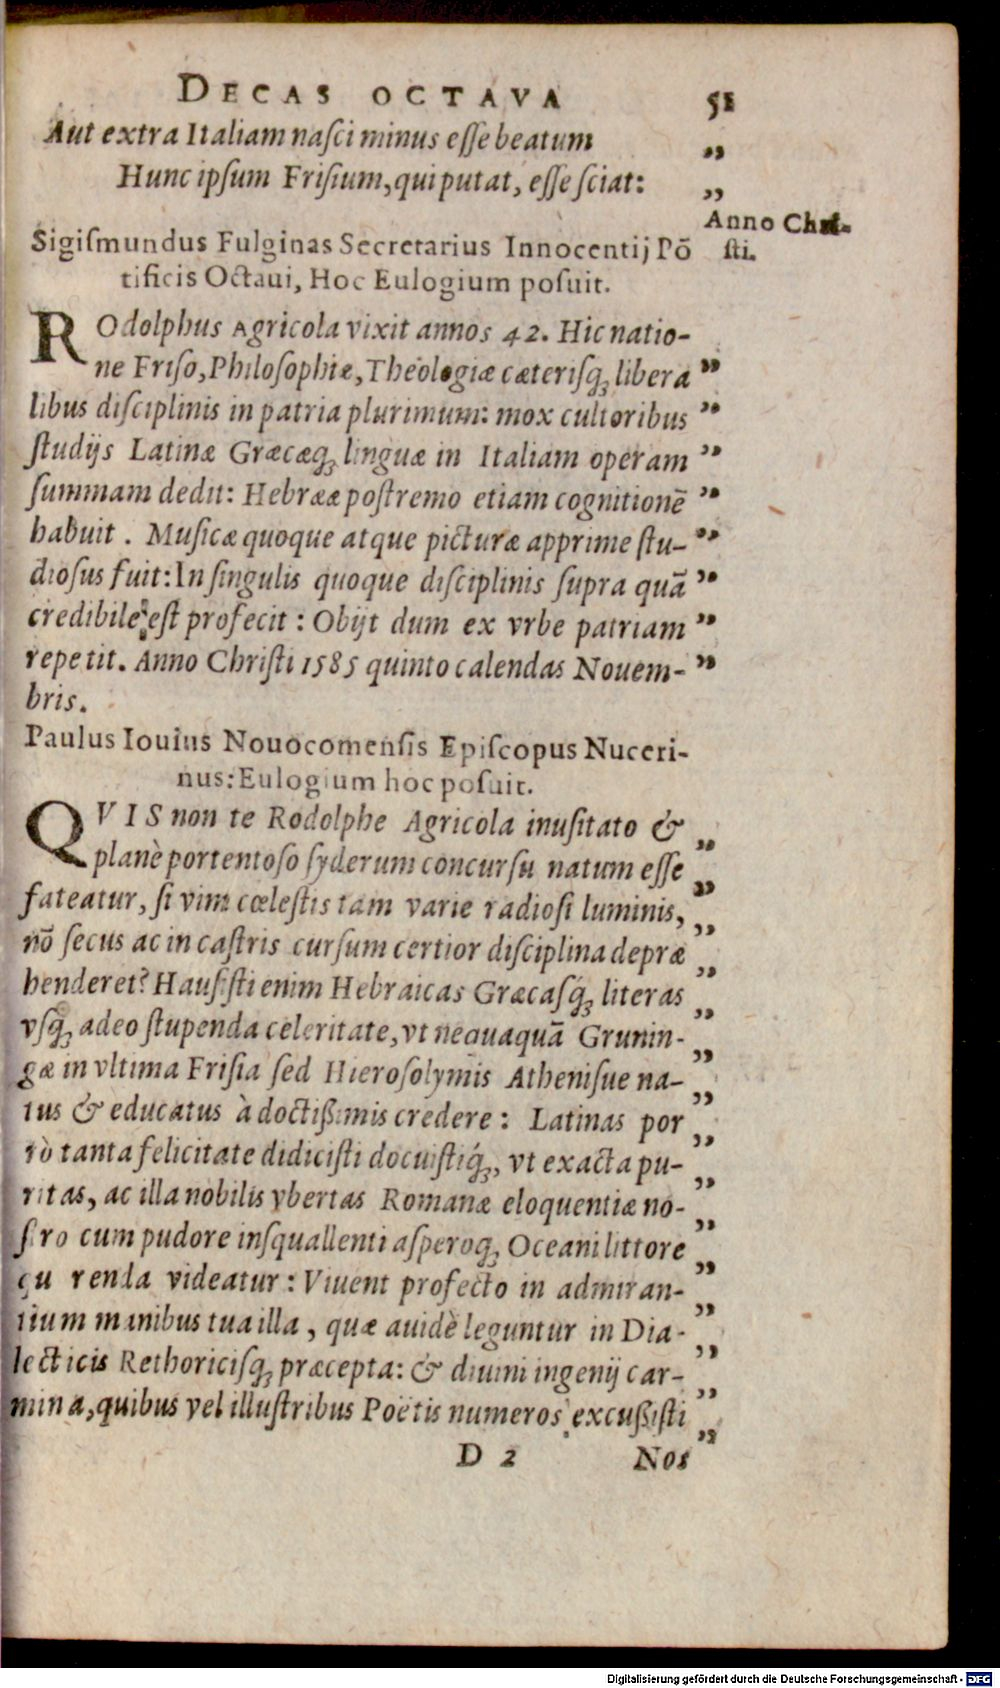 DECAS OCTAVA 51
Aut extra Italiam naſci minus eſſe beatum „
Hunc ipſum Friſium, qui putat, eſſe ſciat: „
Anno Chri-
ſti.
Sigiſmundus Fulginas Secretarius Innocentij Pō
tificis Octaui, Hoc Eulogium poſuit.
ROdolphus Agricola vixit annos 42. Hic natio-
ne Friſo, Philoſophiæ, Theologiæ cæteriſq; libera ”
libus diſciplinis in patria plurimum: mox cultoribus ”
ſtudijs Latinæ Græcæq; linguæ in Italiam operam ”
ſummam dedit: Hebrææ poſtremo etiam cognitionē ”
habuit. Muſicæ quoque atque picturæ apprime ſtu- ”
dioſus fuit: In ſingulis quoque diſciplinis ſupra quā ”
credibile eſt profecit: Obijt dum ex vrbe patriam ”
repetit. Anno Chriſti 1585 quinto calendas Nouem- ”
bris.
Paulus Iouius Nouocomenſis Epiſcopus Nuceri-
nus: Eulogium hoc poſuit.
QVIS non te Rodolphe Agricola inuſitato & „
planè portentoso ſyderum concurſu natum eſſe „
fateatur, ſi vim cœleſtis tam varie radioſi luminis, „
nō ſecus ac in caſtris curſum certior diſciplina depræ „
henderet? Hauſiſti enim Hebraicas Græcaſq́; literas „
vſq; adeo ſtupenda celeritate, vt nequaquā Grunin- „
gæ in vltima Friſia ſed Hieroſolymis Atheniſue na- „
tus & educatus à doctißimis credere: Latinas por „
rò tanta felicitate didiciſti docuiſtiq́;, vt exacta pu- „
ritas, ac illa nobilis vbertas Romanæ eloquentiæ no- „
ſtro cum pudore inſquallenti aſperoq; Oceani littore „
quærenda videatur: Viuent profecto in admiran- „
tium manibus tua illa, quæ auidè leguntur in Dia- „
lecticis Rethoriciſq; præcepta: & diuini ingenij car- „
mina, quibus vel illuſtribus Poëtis numeros excußiſti „
D 2 Nos
Digitalisierung gefördert durch die Deutsche Forschungsgemeinschaft - DFG